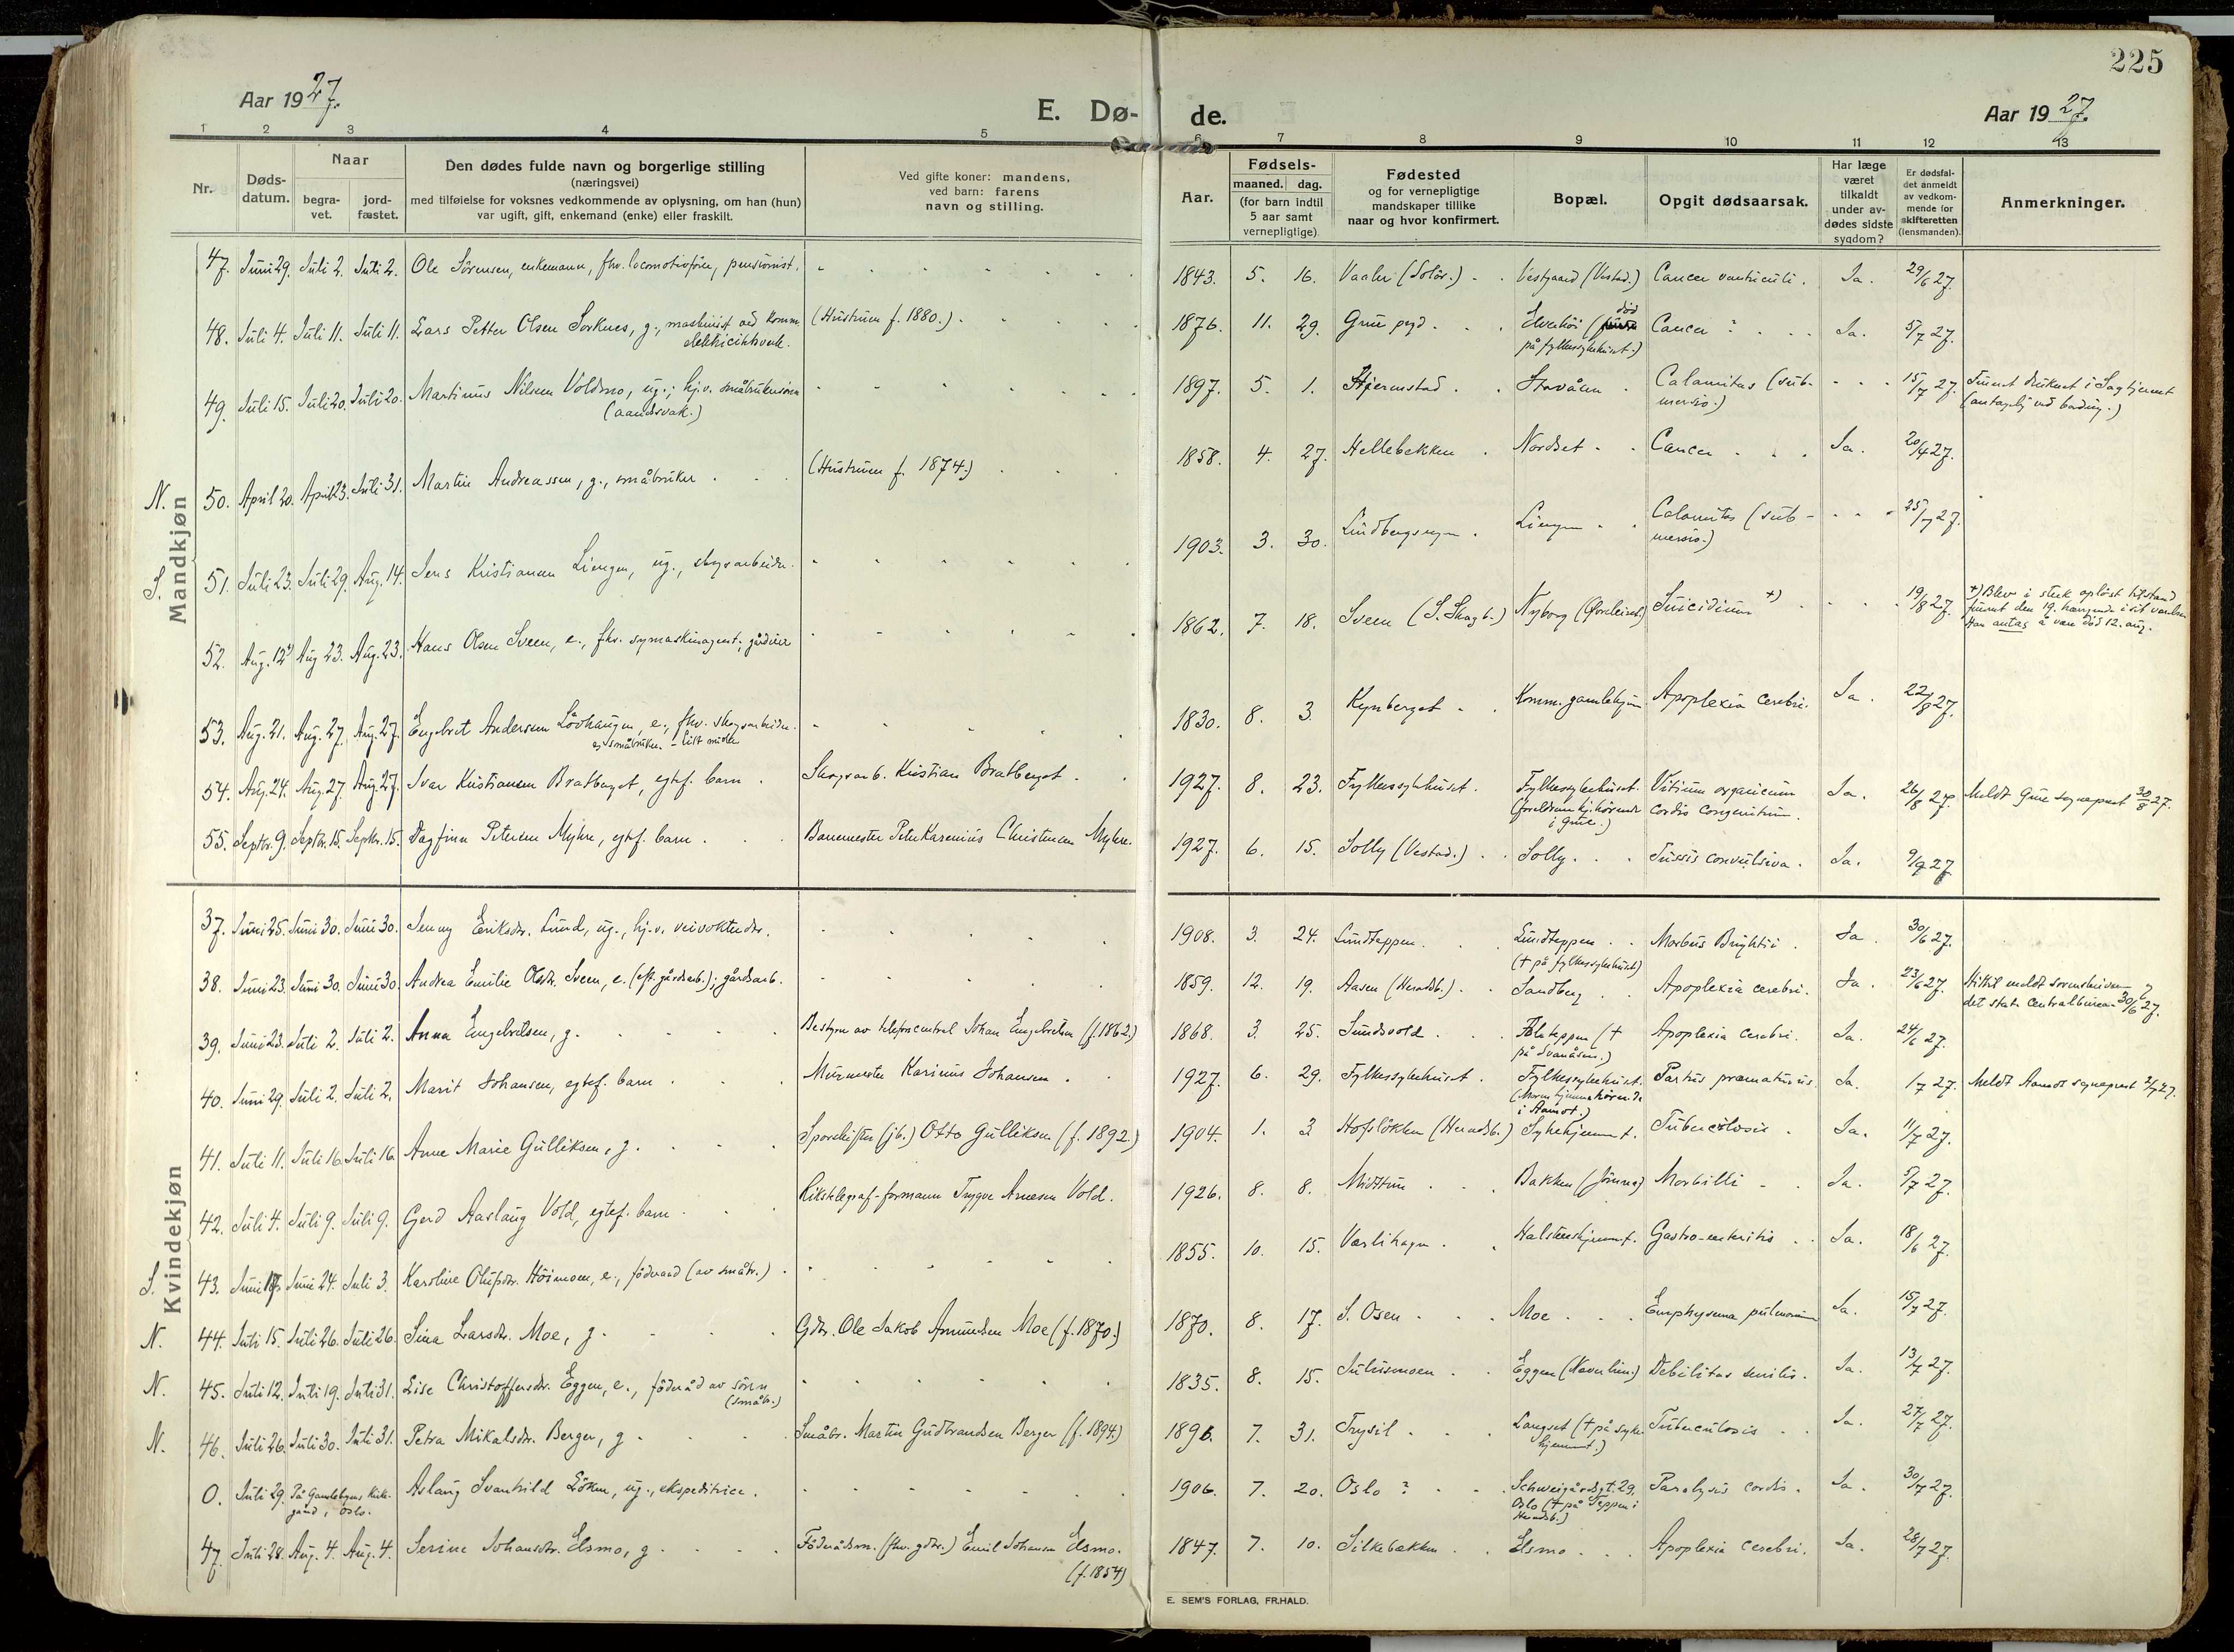 225
Aar 1927.
E. Dø-
de.
Aar 1927.
1 2 3 4 5 6 7 8 9 10 11 12 13
Nr.
Døds-
datum.
Naar
begra-
vet.
jord-
fæstet.
Den dødes fulde navn og borgerlige stilling
(næringsvei)
med tilføielse for voksnes vedkommende av oplysning, om han (hun)
var ugift, gift, enkemand (enke) eller fraskilt.
Ved gifte koner: mandens,
ved barn: farens
navn og stilling.
Aar.
Fødsels-
maaned. dag.
(for barn indtil
5 aar samt
vernepligtige)
Fødested
og for vernepligtige
mandskaper tillike
naar og hvor konfirmert.
Bopæl.
Opgit dødsaarsak.
Har læge
været
tilkaldt
under av-
dødes sidste
sygdom?
Er dødsfal-
det anmeldt
av vedkom-
mende for
skifteretten
(lensmanden).
Anmerkninger.
Mandkjøn
47. Juni 29. Juli 2. Juli 2. Ole Sörensen, enkemann, fhv. locomotivförer, pensionist. 1843. 5. 16. Vaaler (Solör.) Vestgaard (Vestad.) Cancer ventriculi. Ja. 29/6 27.
48. Juli 4. Juli 11. Juli 11. Lars Petter Olsen Sorknes, g., maskinist ved komm. (Hustruen f. 1880.) 1876. 11. 29. Grue prgd. Elverhöi (död Cancer ? Ja. 5/7 27.
elektricitetsverk. på fylkessykehuset.)
49. Juli 15. Juli 20. Juli 20. Martinus Nilsen Voldmo, ug.; hj.v. småbrukersönn 1897. 5. 1. Hjermstad Stavåsen Calamitas (sub- 15/7 27. Funnet druknet i Sagtjernet
(aandssvak.) mersio.) (antagelig ved bading.)
N. 50. April 20. April 23. Juli 31. Martin Andreassen, g., småbruker (Hustruen f. 1874.) 1858. 4. 27. Hellebekken Nordset Cancer Ja. 20/4 27.
S. 51. Juli 23. Juli 29. Aug. 14. Jens Kristiansen Liengen, ug., skogsarbeider. 1903. 3. 30. Lindbergsengen Liengen Calamitas (sub- 25/7 27.
mersio.)
52. Aug. 12 Aug 23. Aug. 23. Hans Olsen Sveen, e., fhv. symaskinagent; gårdeier 1862. 7. 18. Sveen (S. Skagb.) Nyborg Suicidium +) 19/8 27. +) Blev i sterk oplöst tilstand
funnet den 19. hængende i sit
Han antas å være död 12. aug.
53. Aug. 21. Aug. 27. Aug. 27. Engebret Andersen Lövhaugen, e., fhv. skogsarbeider. 1830. 8. 3. Kynberget Komm. gamlehjem Apoplexia cerebri. Ja. 22/8 27.
og småbruker
54. Aug. 24. Aug. 27. Aug. 27. Ivar Kristiansen Bratberget, egtef. barn. Skogsarb. Kristian Bratberget. 1927. 8. 23. Fylkessykehuset. Fylkessykehuset. Vitium organicum Ja. 26/8 27. Meldt Grue sogneprest 30/8 27.
(foreldrene hj.hörende cordis congenitum.
i Grue.)
55. Septbr. 9. Septbr. 15. Septbr. 15. Dagfinn Petersen Myhre, egtef. barn. Banemester Peter Karenius Christensen Myhre. 1927. 6. 15. Solly (Vestad.) Solly. Tussis convulsiva. Ja. 9/9 27
Kvindekjøn
37. Juni 25. Juni 30. Juni 30. Jenny Eriksdr. Lund, ug., hj.v. veivokterdtr. 1908. 3. 24. Lundteppen. Lundteppen Morbus Brightii. Ja. 30/6 27.
(† på fylkessykehuset)
38. Juni 23. Juni 30. Juni 30. Andrea Emilie Olsdr. Sveen, e. (eft. gårdsarb.); gårdsarb. 1859. 12. 19. Aasen (Heradsb.) Sandberg Apoplexia cerebri. Ja. 23/6 27.
39. Juni 23. Juli 2. Juli 2. Anna Engebretsen, g. Bestyrer av telefoncentral Johan Engebretsen (f. 1862.) 1868. 3. 25. Sundsvold († Apoplexia cerebri. Ja. 24/6 27.
på Svanåsen.)
40. Juni 29. Juli 2. Juli 2. Marit Johansen, egtef. barn Murmester Karinus Johansen. 1927. 6. 29. Fylkessykehuset. Fylkessykehuset. Partus præmaturus. Ja. 1/7 27. Meldt Aamot sogneprest 2/7 27.
(Moren hjemmehörende
i Aamot.)
41. Juli 11. Juli 16. Juli 16. Anne Marie Gulliksen, g. Sporskifter (jb.) Otto Gulliksen (f. 1892.) 1904. 1. 3 Hofslökken (Heradsb.) Sykehjemmet. Tuberculosis. Ja. 11/7 27.
42. Juli 4. Juli 9. Juli 9. Gerd Aaslaug Vold, egtef. barn. Rikstelegraf-formann Trygve Arnesen Vold. 1926. 8. 8. Midttun Bakken (Jömna) Morbilli Ja. 5/7 27.
S. 43. Juni 17 Juni 24. Juli 3. Karoline Olufsdr. Höimoen, e., föderaad (av småbr.) 1855. 10. 15. Værlihagen. Gastro-enteritis Ja. 18/6 27.
N. 44. Juli 15. Juli 26. Juli 26. Sina Larsdr. Moe, g. Gdbr. Ole Jakob Amundsen Moe (f. 1870.) 1870. 8. 17. S. Osen Moe Emphysema pulmonum Ja. 15/7 27.
N. 45. Juli 12. Juli 19. Juli 31. Lise Christoffersdr. Eggen, e., föderåd av sönn 1835. 8. 15. Julusmoen Eggen Debilitas senilis. Ja. 13/7 27.
(småbr.)
N. 46. Juli 26. Juli 30. Juli 31. Petra Mikalsdr. Berger, g Småbr. Martin Gudbrandsen Berger (f. 1894) 1896. 7. 31. Trysil Langset († på syke- Tuberculosis Ja. 27/7 27.
hjemmet.)
0. Juli 29. På Gamlebyens kirke- Aslaug Svanhild Löken, ug., ekspeditrice. 1906. 7. 20. Oslo ? Schweigårdsgt. 29. Paralysis cordis. Ja. 30/7 27.
gård, Oslo. Oslo († på Teppen i
Heradsb.)
47. Juli 28. Aug. 4. Aug. 4. Serine Johansdtr. Elsmo, g Föderådsm. (fhv. gdbr.) Emil Johansen Elsmo. 1847. 7. 10. Silkebækken Elsmo Apoplexia cerebri. Ja. 28/7 27.
(f. 1854)
E. SEM'S FORLAG, FR.HALD.